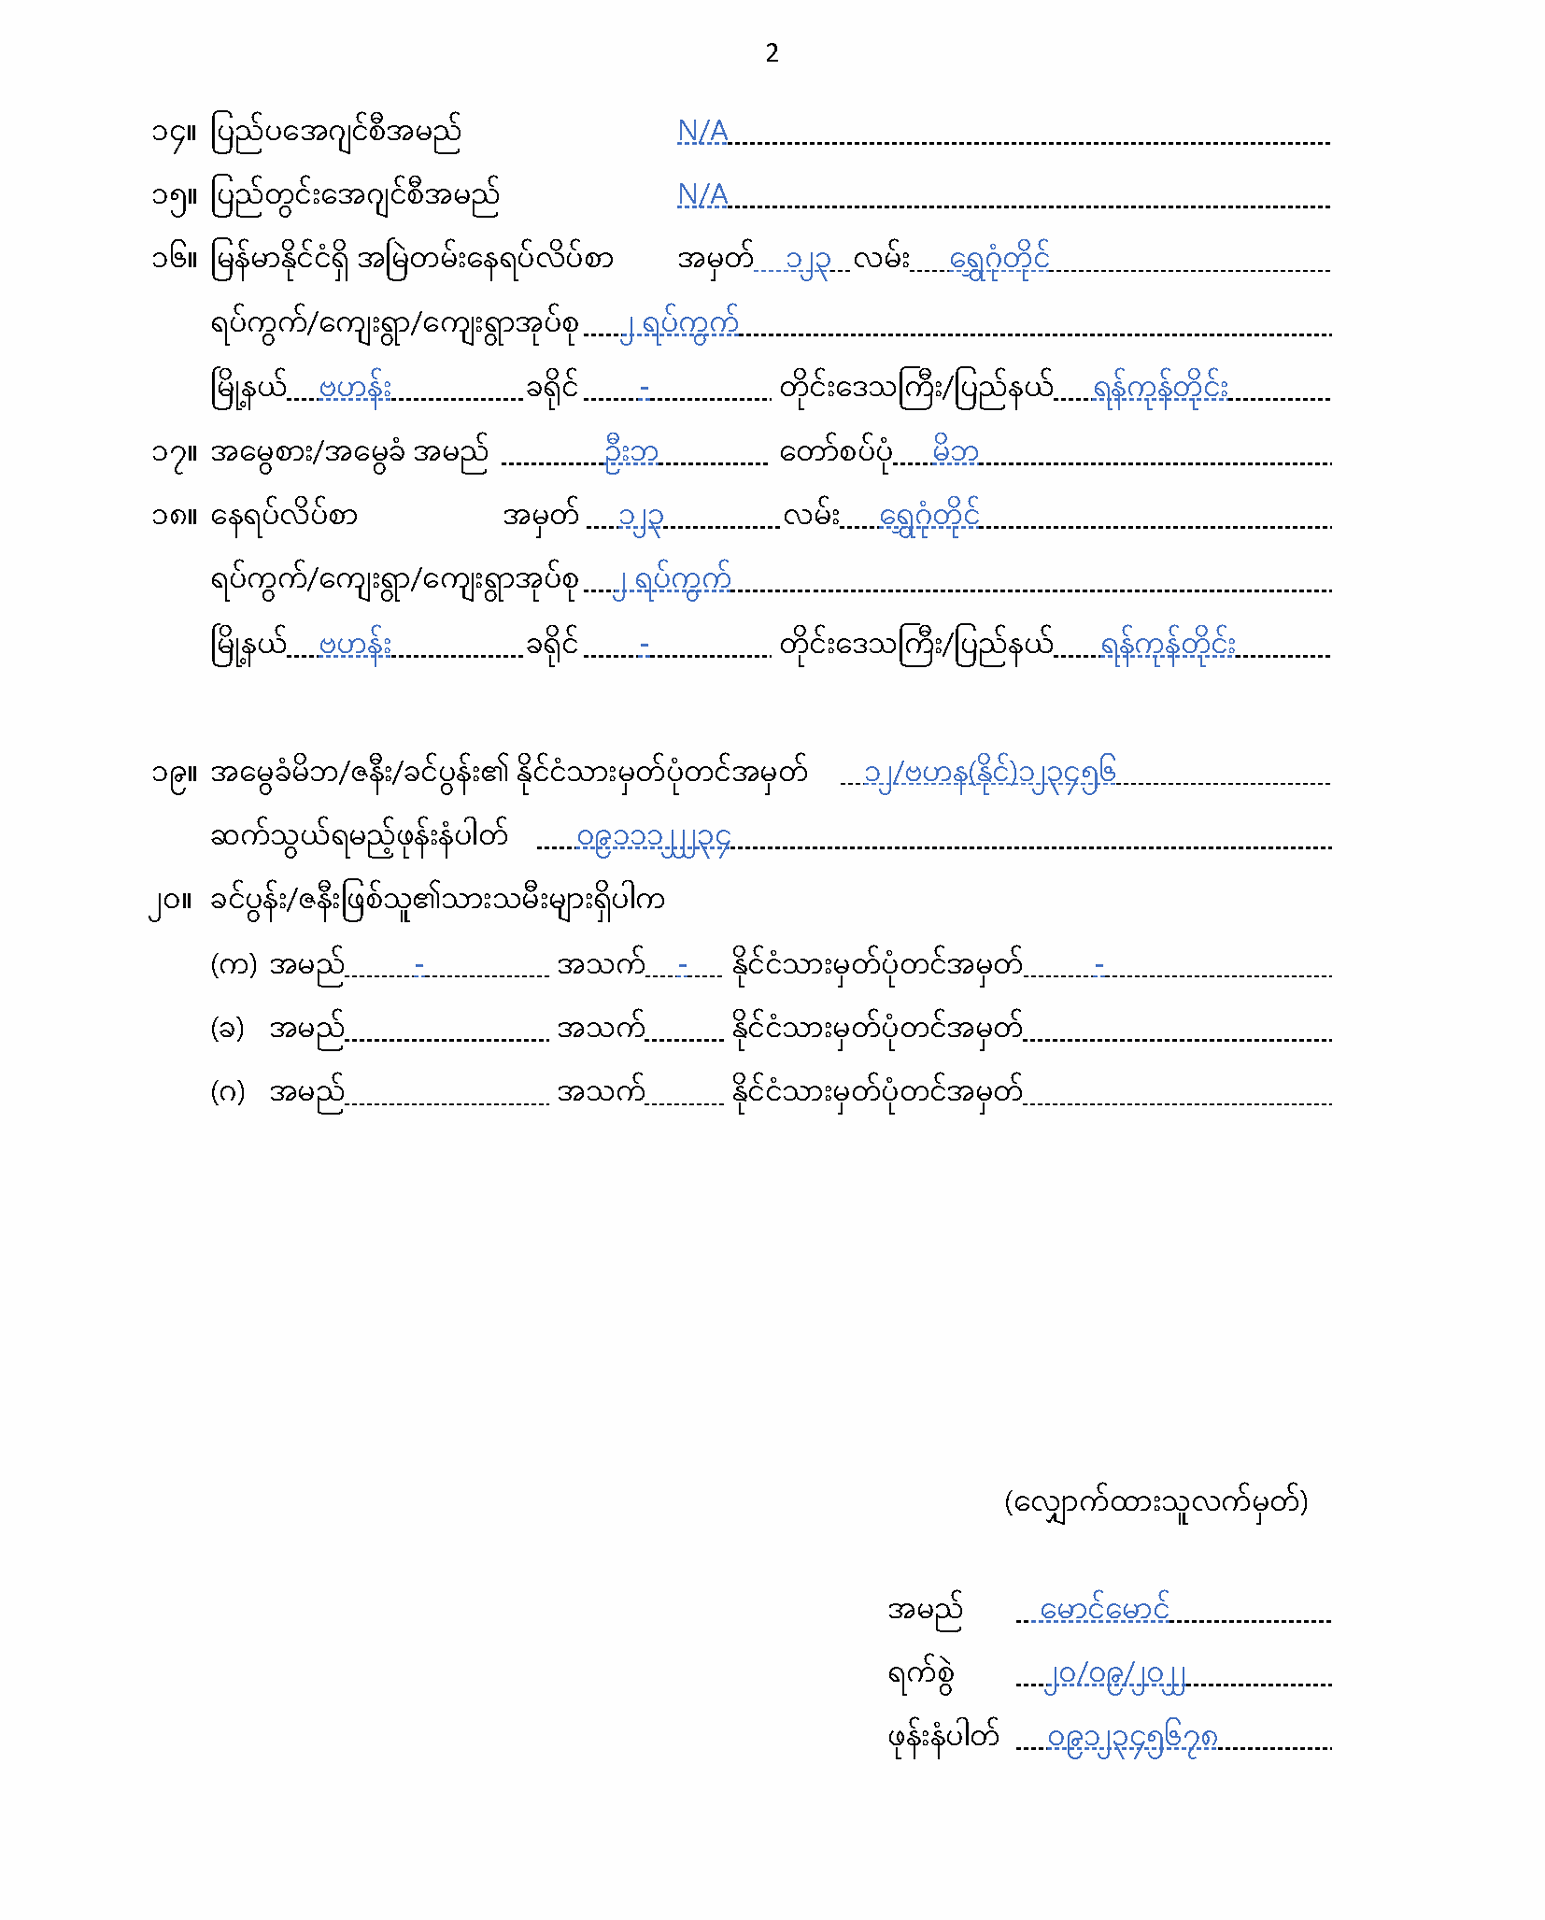 2
၁၄။ ပြည်ပအေဂျင်စီအမည် N/A
၁၅။ ပြည်တွင်းအေဂျင်စီအမည် N/A
၁၆။ မြန်မာနိုင်ငံရှိ အမြဲတမ်းနေရပ်လိပ်စာ အမှတ် ၁၂၃ လမ်း ရွှေဂုံတိုင်
ရပ်ကွက်/ကျေးရွာ/ကျေးရွာအုပ်စု ၂ ရပ်ကွက်
မြို့နယ် ဗဟန်း ခရိုင် - တိုင်းဒေသကြီး/ပြည်နယ် ရန်ကုန်တိုင်း
၁၇။ အမွေစား/အမွေခံ အမည် ဦးဘ တော်စပ်ပုံ မိဘ
၁၈။ နေရပ်လိပ်စာ အမှတ် ၁၂၃ လမ်း ရွှေဂုံတိုင်
ရပ်ကွက်/ကျေးရွာ/ကျေးရွာအုပ်စု ၂ ရပ်ကွက်
မြို့နယ် ဗဟန်း ခရိုင် - တိုင်းဒေသကြီး/ပြည်နယ် ရန်ကုန်တိုင်း
၁၉။ အမွေခံမိဘ/ဇနီး/ခင်ပွန်း၏ နိုင်ငံသားမှတ်ပုံတင်အမှတ် ၁၂/ဗဟန(နိုင်)၁၂၃၄၅၆
ဆက်သွယ်ရမည့်ဖုန်းနံပါတ် ၀၉၁၁၁၂၂၂၃၄
၂၀။ ခင်ပွန်း/ဇနီးဖြစ်သူ၏သားသမီးများရှိပါက
(က) အမည် - အသက် - နိုင်ငံသားမှတ်ပုံတင်အမှတ် -
(ခ) အမည် အသက် နိုင်ငံသားမှတ်ပုံတင်အမှတ်
(ဂ) အမည် အသက် နိုင်ငံသားမှတ်ပုံတင်အမှတ်
(လျှောက်ထားသူလက်မှတ်)
အမည် မောင်မောင်
ရက်စွဲ ၂၀/၀၉/၂၀၂၂
ဖုန်းနံပါတ် ၀၉၁၂၃၄၅၆၇၈